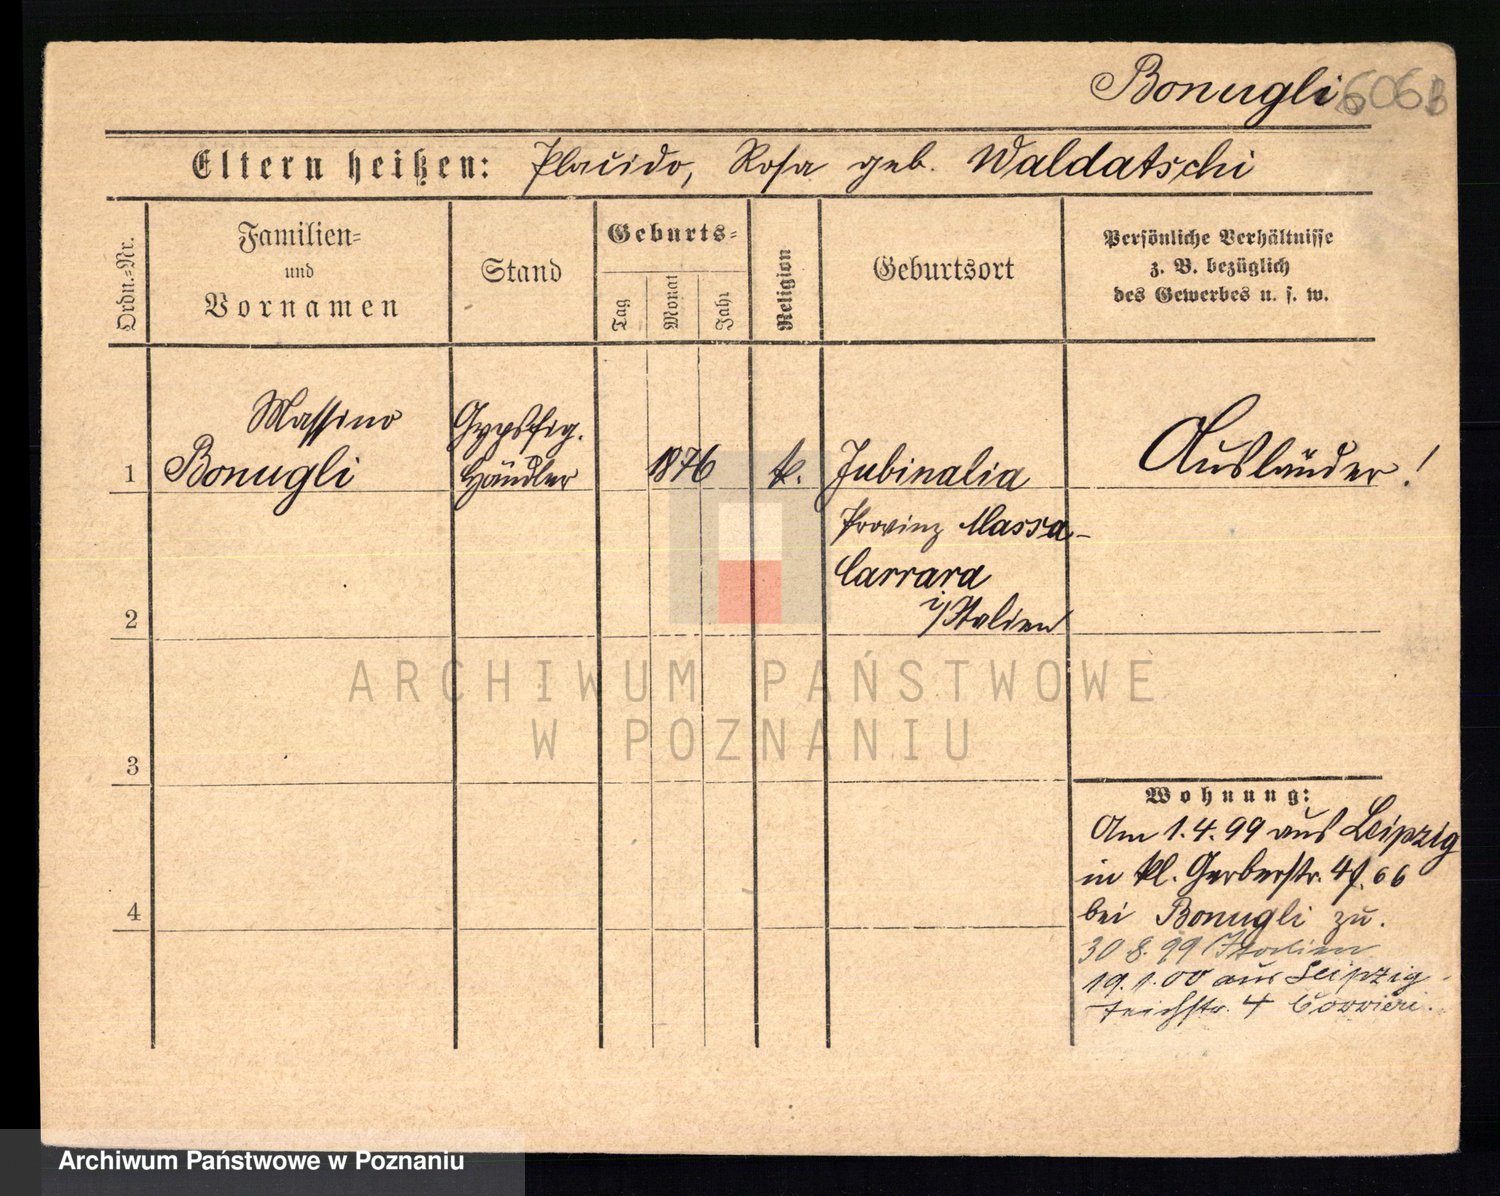 Bonugli 606B
Eltern heißen: Placido, Rosa geb. Waldatschi
Ordn.-Nr.
Familien-
und
Vornamen
Stand
Geburts-
Tag
Monat
Jahr
Religion
Geburtsort
Persönliche Verhältnisse
z. B. bezüglich
des Gewerbes u. s. w.
Massino
1 Bonugli
Gypsfig.
Händler
1876
k.
Jubinalia
Provinz Massa-
Carrara
i/Italien
Ausländer!
2
3
4
Wohnung:
Am 1.4.99 aus Leipzig
in kl. Gerberstr. 4 f. 66
bei Bonugli zu.
30 8. 99 Italien
19. 1. 00 aus Leipzig
Teichstr. 4 Corrieri.
ARCHIWUM PAŃSTWOWE
W POZNANIU
Archiwum Państwowe w Poznaniu